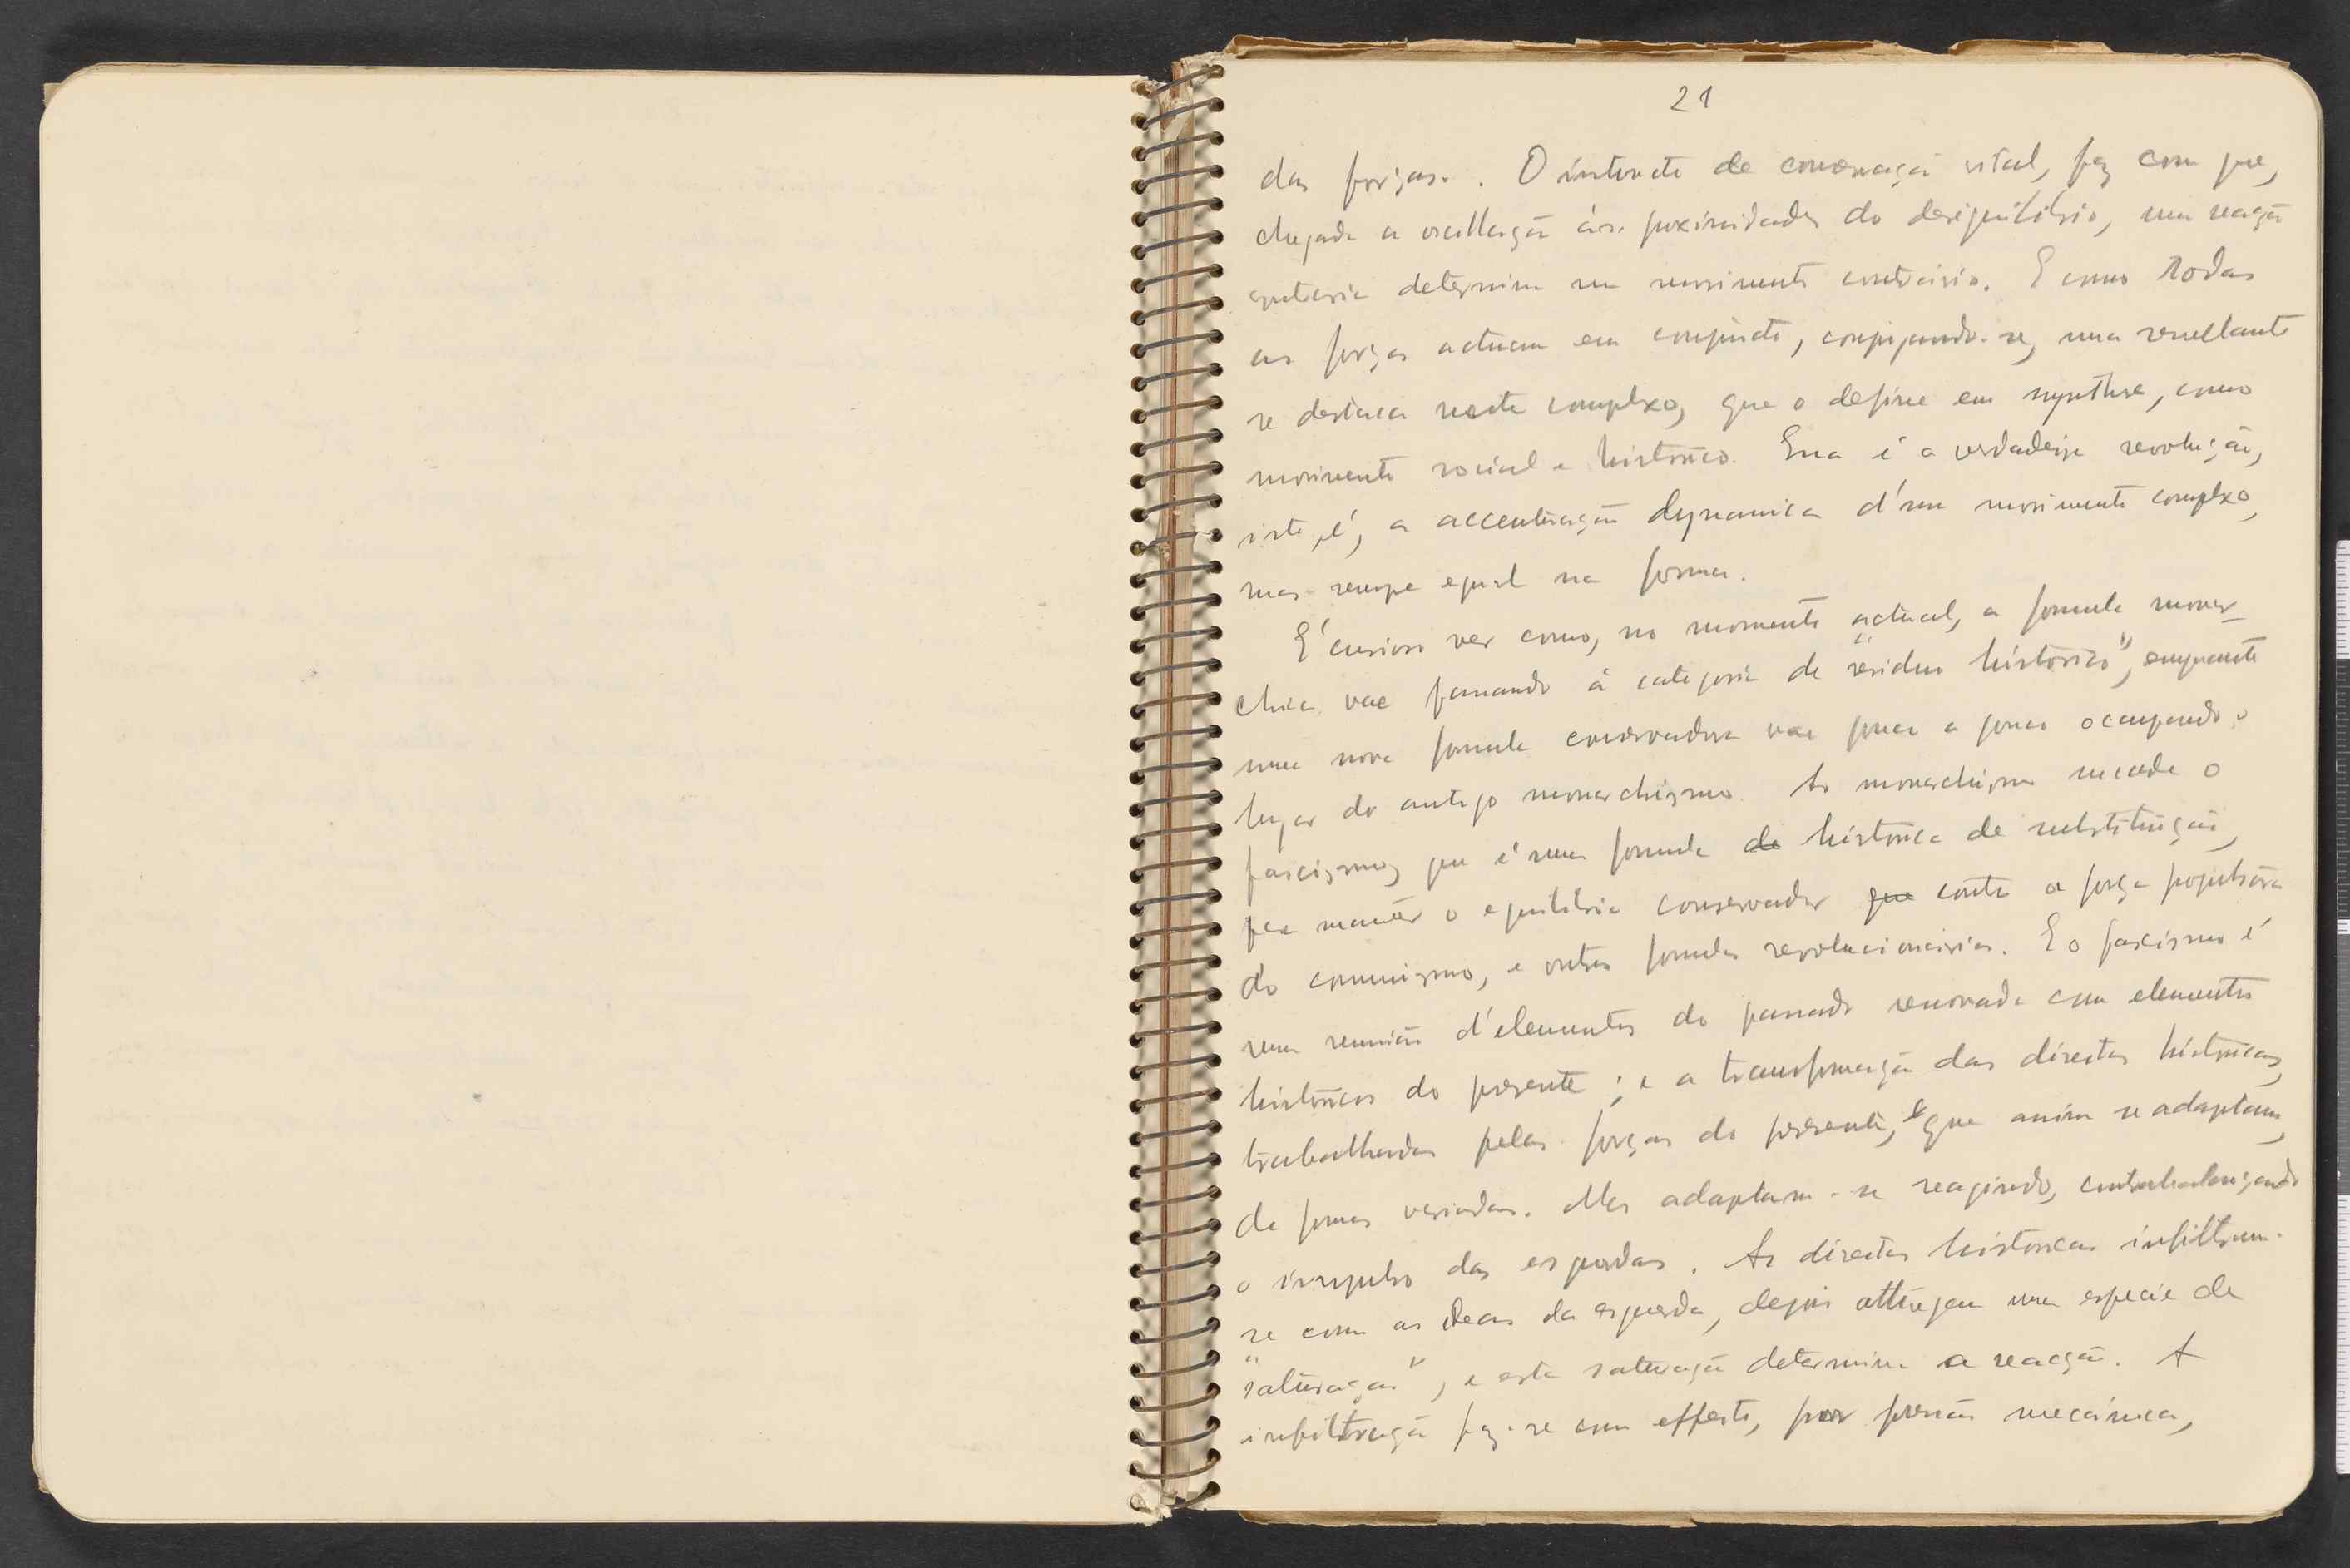 21
das forças. O instincto de conservação vital, faz com que,
chegada a oscillação ás proximidades do desiquilibrio, uma reação
contraria determina um movimento contrário. E como todas
as forças actuam em conjuncto, conjugando-se, uma resultante
se destaca neste complexo, que o define em synthese, como
movimento social e historico. Essa é a verdadeira revolução,
isto é, a accentuação dynamica d'um movimento complexo,
mas sempre egual na forma.
E' curioso ver como, no momento actual, a formula monar-
chica vae passando á categoria de "residuo historico", emquanto
uma nova formula conservadora vae pouco a pouco occupando o
lugar do antigo monarchismo. Ao monarchismo succede o
fascismo, que é uma formula de historica de substituição,
para manter o equilibrio conservador que contra a força propulsora
do communismo, e outras formulas revolucionarias. E o fascismo é
uma reunião d'elementos do passado renovada com elementos
historicos do presente; é a transformação das direitas historicas,
trabalhadas pelas forças do presente, e que assim se adaptam,
de formas variadas. Mas adaptam-se reagindo, contrabalançando
o impulso das esquerdas. As direitas historicas infiltram-
se com as ideas da esquerda, depois attingem uma especie de
"saturação", e esta saturação determina a reacção. A
infiltração faz-se com effeito, por pressão mecánica,